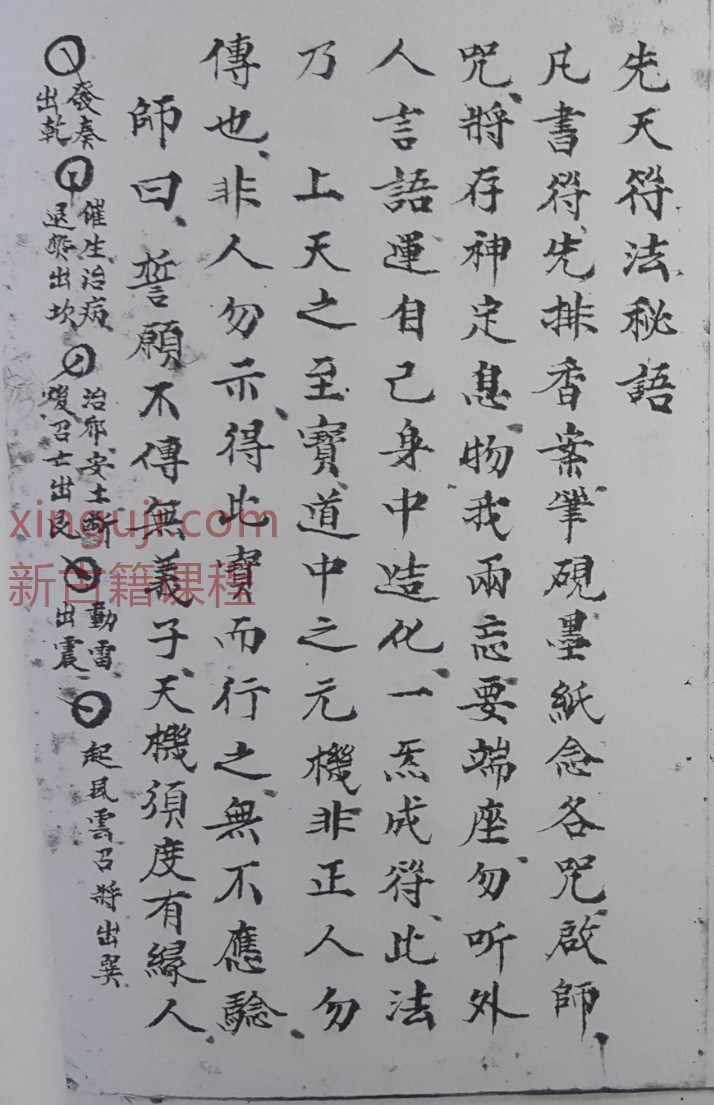 先天符法秘語
凡書符先排香案筆硯墨紙念各咒啟師
咒將存神定息物我兩忘要端座勿听外
人言語運自己身中造化一炁成符此法
乃　上天之至寶道中之元機非正人勿
傳也非人勿示得此寶而行之無不應驗
師曰誓願不傳無義子天機須度有緣人
發奏
出乾
催生治病
出坎
治邪安土断
召士出艮
動雷
出震
起風雲召將出巽
xinguji.com
新古籍课程